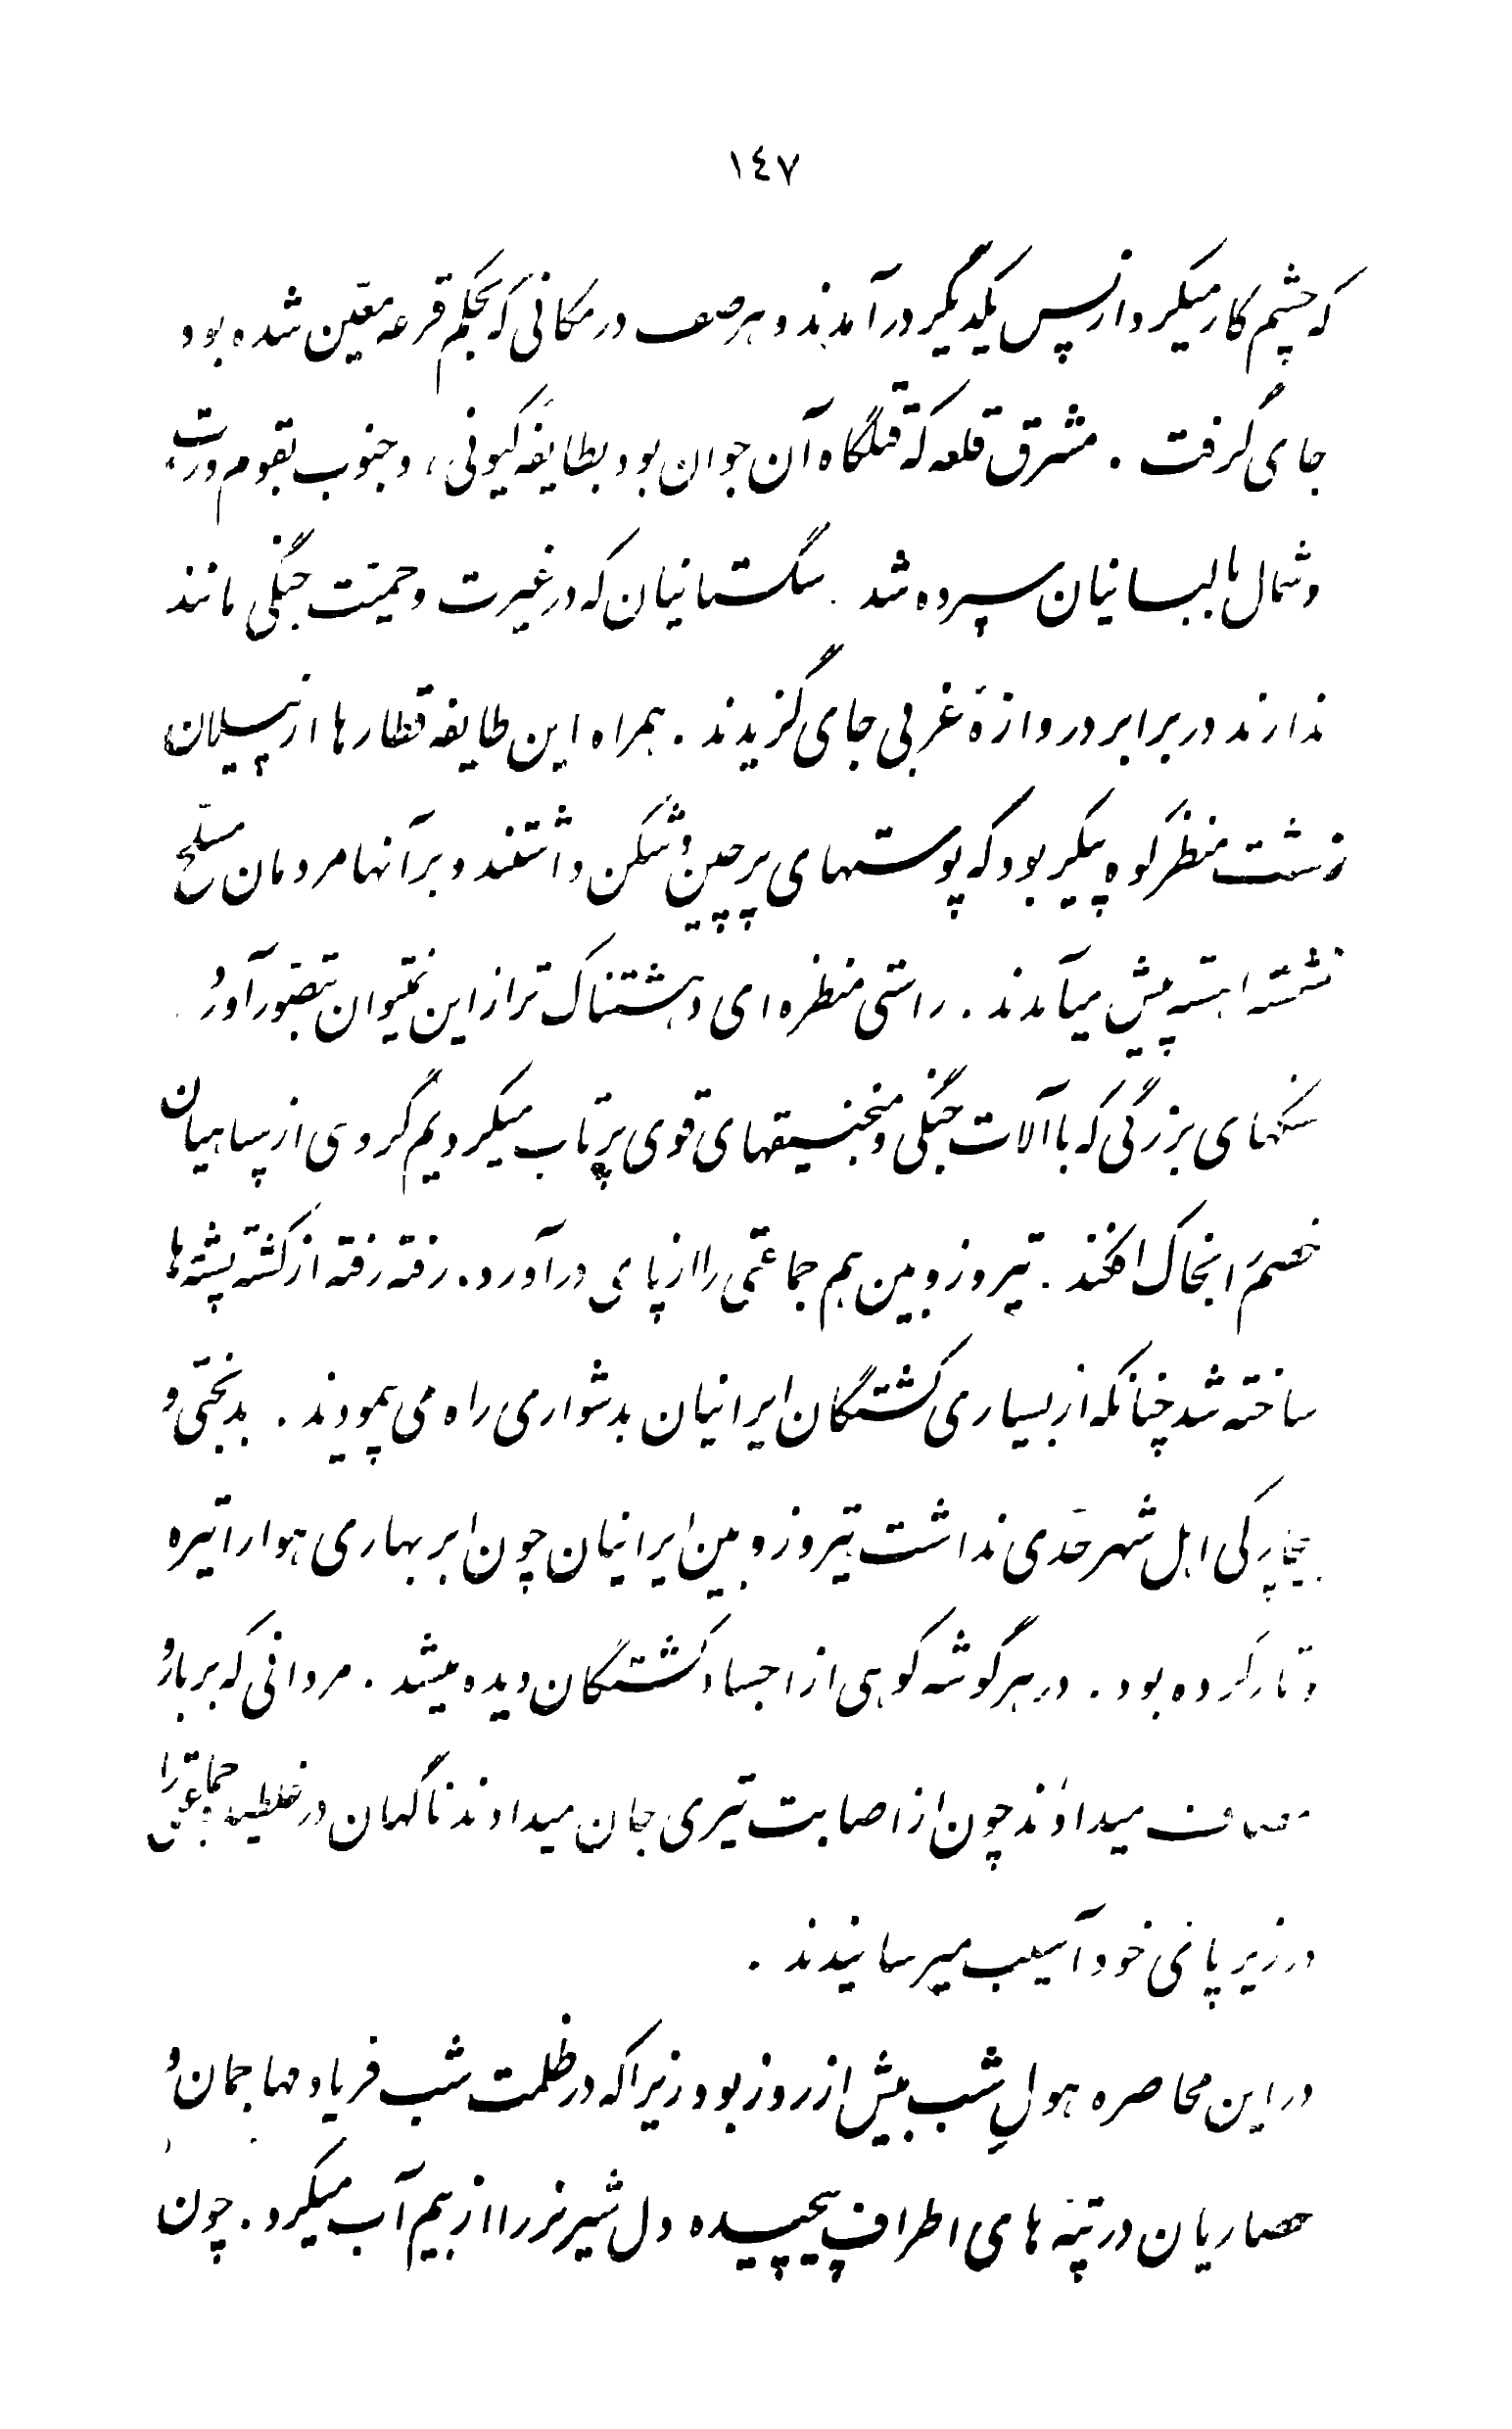 ١٤٧
که چشم کار میکرد از پس یکدیگر در آمدند و هر صف در مکانی که بحکم قرعه معیّن شده بود
جای گرفت . مشرق قلعه که قتلگاه آن جوان بود بطایفهٔ کیونی ، و جنوب بقوم ورت
و شمال بالبانیان سپرده شد . سگستانیان که در غیرت و حمیّت جنگی مانند
ندارند در برابر دروازهٔ غربی جای گزیدند . همراه این طایفه قطارها از پیلان
زشت منظر کوه پیکر بود که پوستهای پرچین و شکن داشتند و بر آنها مردمان مسلّح
نشسته اهسته پیش میآمدند . راستی منظره ای دهشتناک تر از این نمیتوان بتصوّر آورد
سنگهای بزرگی که با آلات جنگی و منجنیقهای قوی پرتاب میکردیم گروهی از سپاهیان
خصم را بخاک افکند . تیر و زوبین هم جماعتی را از پای در آورد . رفته رفته از کشته پشته ها
ساخته شد چنانکه از بسیاری کشتگان ایرانیان بدشواری راه می پیمودند . بدبختی و
بیچارگی اهل شهر حدّی نداشت تیر و زوبین ایرانیان چون ابر بهاری هوا را تیره
و تار کرده بود . در هر گوشه کوهی از اجساد کشتگان دیده میشد . مردانی که بر بارو
مصاف میدادند چون از اصابت تیری جان میدادند ناگهان در غلطیده جماعتی را
در زیر پای خود آسیب میرسانیدند .
در این محاصره هول شب بیش از روز بود زیرا که در ظلمت شب فریاد مهاجمان و
حصاریان در تپّه های اطراف پیچیده دل شیر نر را از بیم آب میکرد . چون